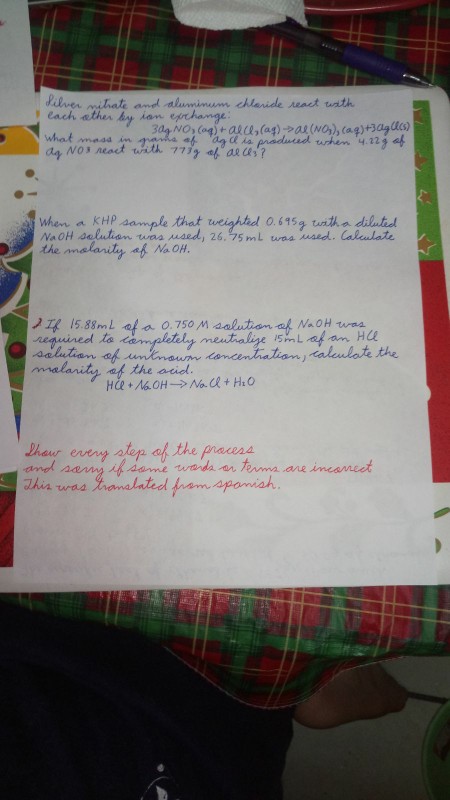 Silver nitrate and aluminum chloride react with
each other by ion exchange:
3AgNO₃(aq) + AlCl₃(aq) → Al(NO₃)₃(aq) + 3AgCl(s)
What mass in grams of AgCl is produced when 4.22g of
Ag NO3 react with 7.73g of AlCl₃?
When a KHP sample that weighted 0.695g with a diluted
NaOH solution was used, 26.75mL was used. Calculate
the molarity of NaOH.
If 15.88mL of a 0.750 M solution of NaOH was
required to completely neutralize 15mL of an HCl
solution of unknown concentration, calculate the
molarity of the acid.
HCl + NaOH → NaCl + H₂O
Show every step of the process
and sorry if some words or terms are incorrect
This was translated from spanish.